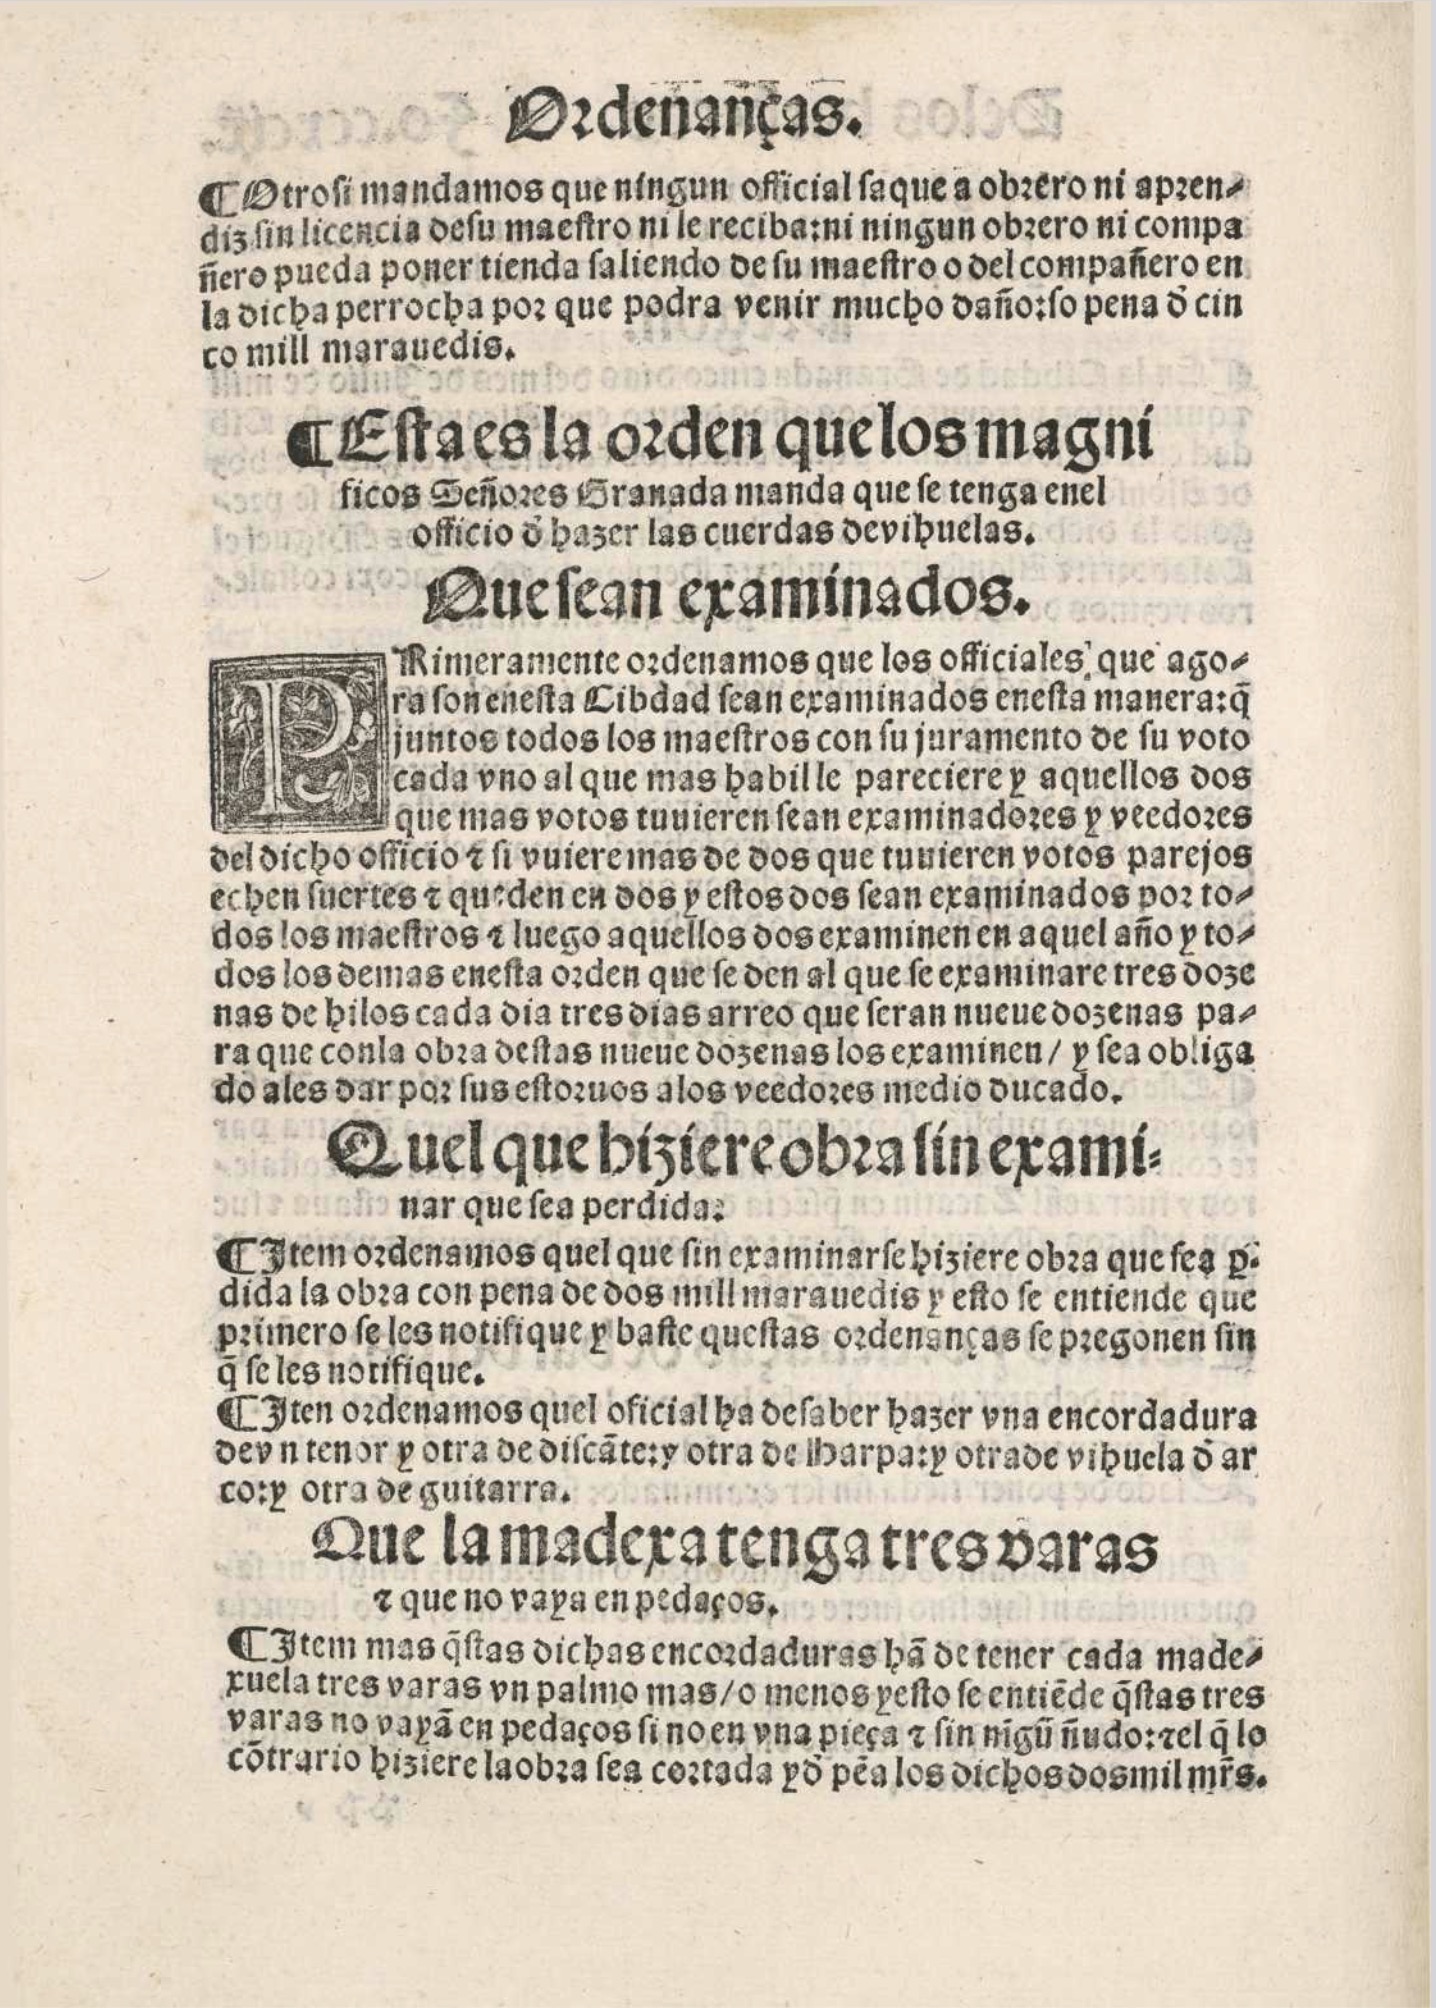 Ordenanças.
¶ Otrosi mandamos que ningun official saque a obrero ni apren-
diz sin licencia desu maestro ni le reciba:ni ningun obrero ni compa
ñero pueda poner tienda saliendo de su maestro o del compañero en
la dicha perrocha por que podra venir mucho daño:so pena đ cin
co mill marauedis.
¶ Esta es la orden que los magni
ficos Señores Granada manda que se tenga enel
officio đ hazer las cuerdas devihuelas.
Que sean examinados.
PRimeramente ordenamos que los officiales, que ago-
ra son enesta Cibdad sean examinados enesta manera:q̃
juntos todos los maestros con su juramento de su voto
cada vno al que mas habil le pareciere y aquellos dos
que mas votos tuuieren sean examinadores y veedores
del dicho officio ⁊ si vuiere mas de dos que tuuieren votos parejos
echen suertes ⁊ queden en dos y estos dos sean examinados por to-
dos los maestros ⁊ luego aquellos dos examinen en aquel año y to-
dos los demas enesta orden que se den al que se examinare tres doze
nas de hilos cada dia tres dias arreo que seran nueue dozenas pa-
ra que conla obra destas nueue dozenas los examinen/ y sea obliga
do ales dar por sus estoruos alos veedores medio ducado.
Quel que hiziere obra sin exami-
nar que sea perdida:
¶ Item ordenamos quel que sin examinarse hiziere obra que sea ꝑ-
dida la obra con pena de dos mill marauedis y esto se entiende que
primero se les notifique y baste questas ordenanças se pregonen sin
q̃ se les notifique.
¶ Iten ordenamos quel oficial ha desaber hazer vna encordadura
devn tenor y otra de discãte:y otra de Harpa:y otrade vihuela đ ar
co:y otra de guitarra.
Que la madexa tenga tres varas
⁊ que no vaya en pedaços.
¶ Item mas q̃stas dichas encordaduras hã de tener cada made-
xuela tres varas vn palmo mas/o menos yesto se entiẽde q̃stas tres
varas no vayã en pedaços si no en vna pieça ⁊ sin nĩgũ ñudo:⁊el q̃ lo
cõtrario hiziere laobra sea cortada yđ pẽa los dichos dosmil mr̃s.